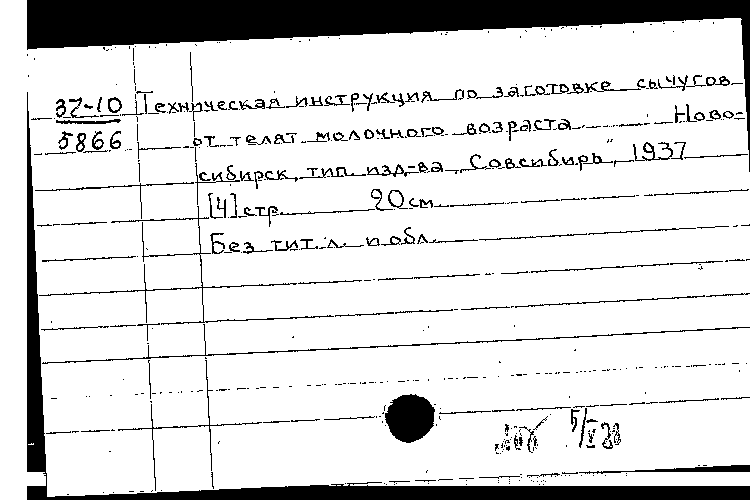 37-10 Техническая инструкция по заготовке сычугов
5866 от телят молочного возраста. Ново-
сибирск, тип. изд-ва „Совсибирь", 1937
[4] стр. 20 см.
Без тит. л. и обл.
5/V